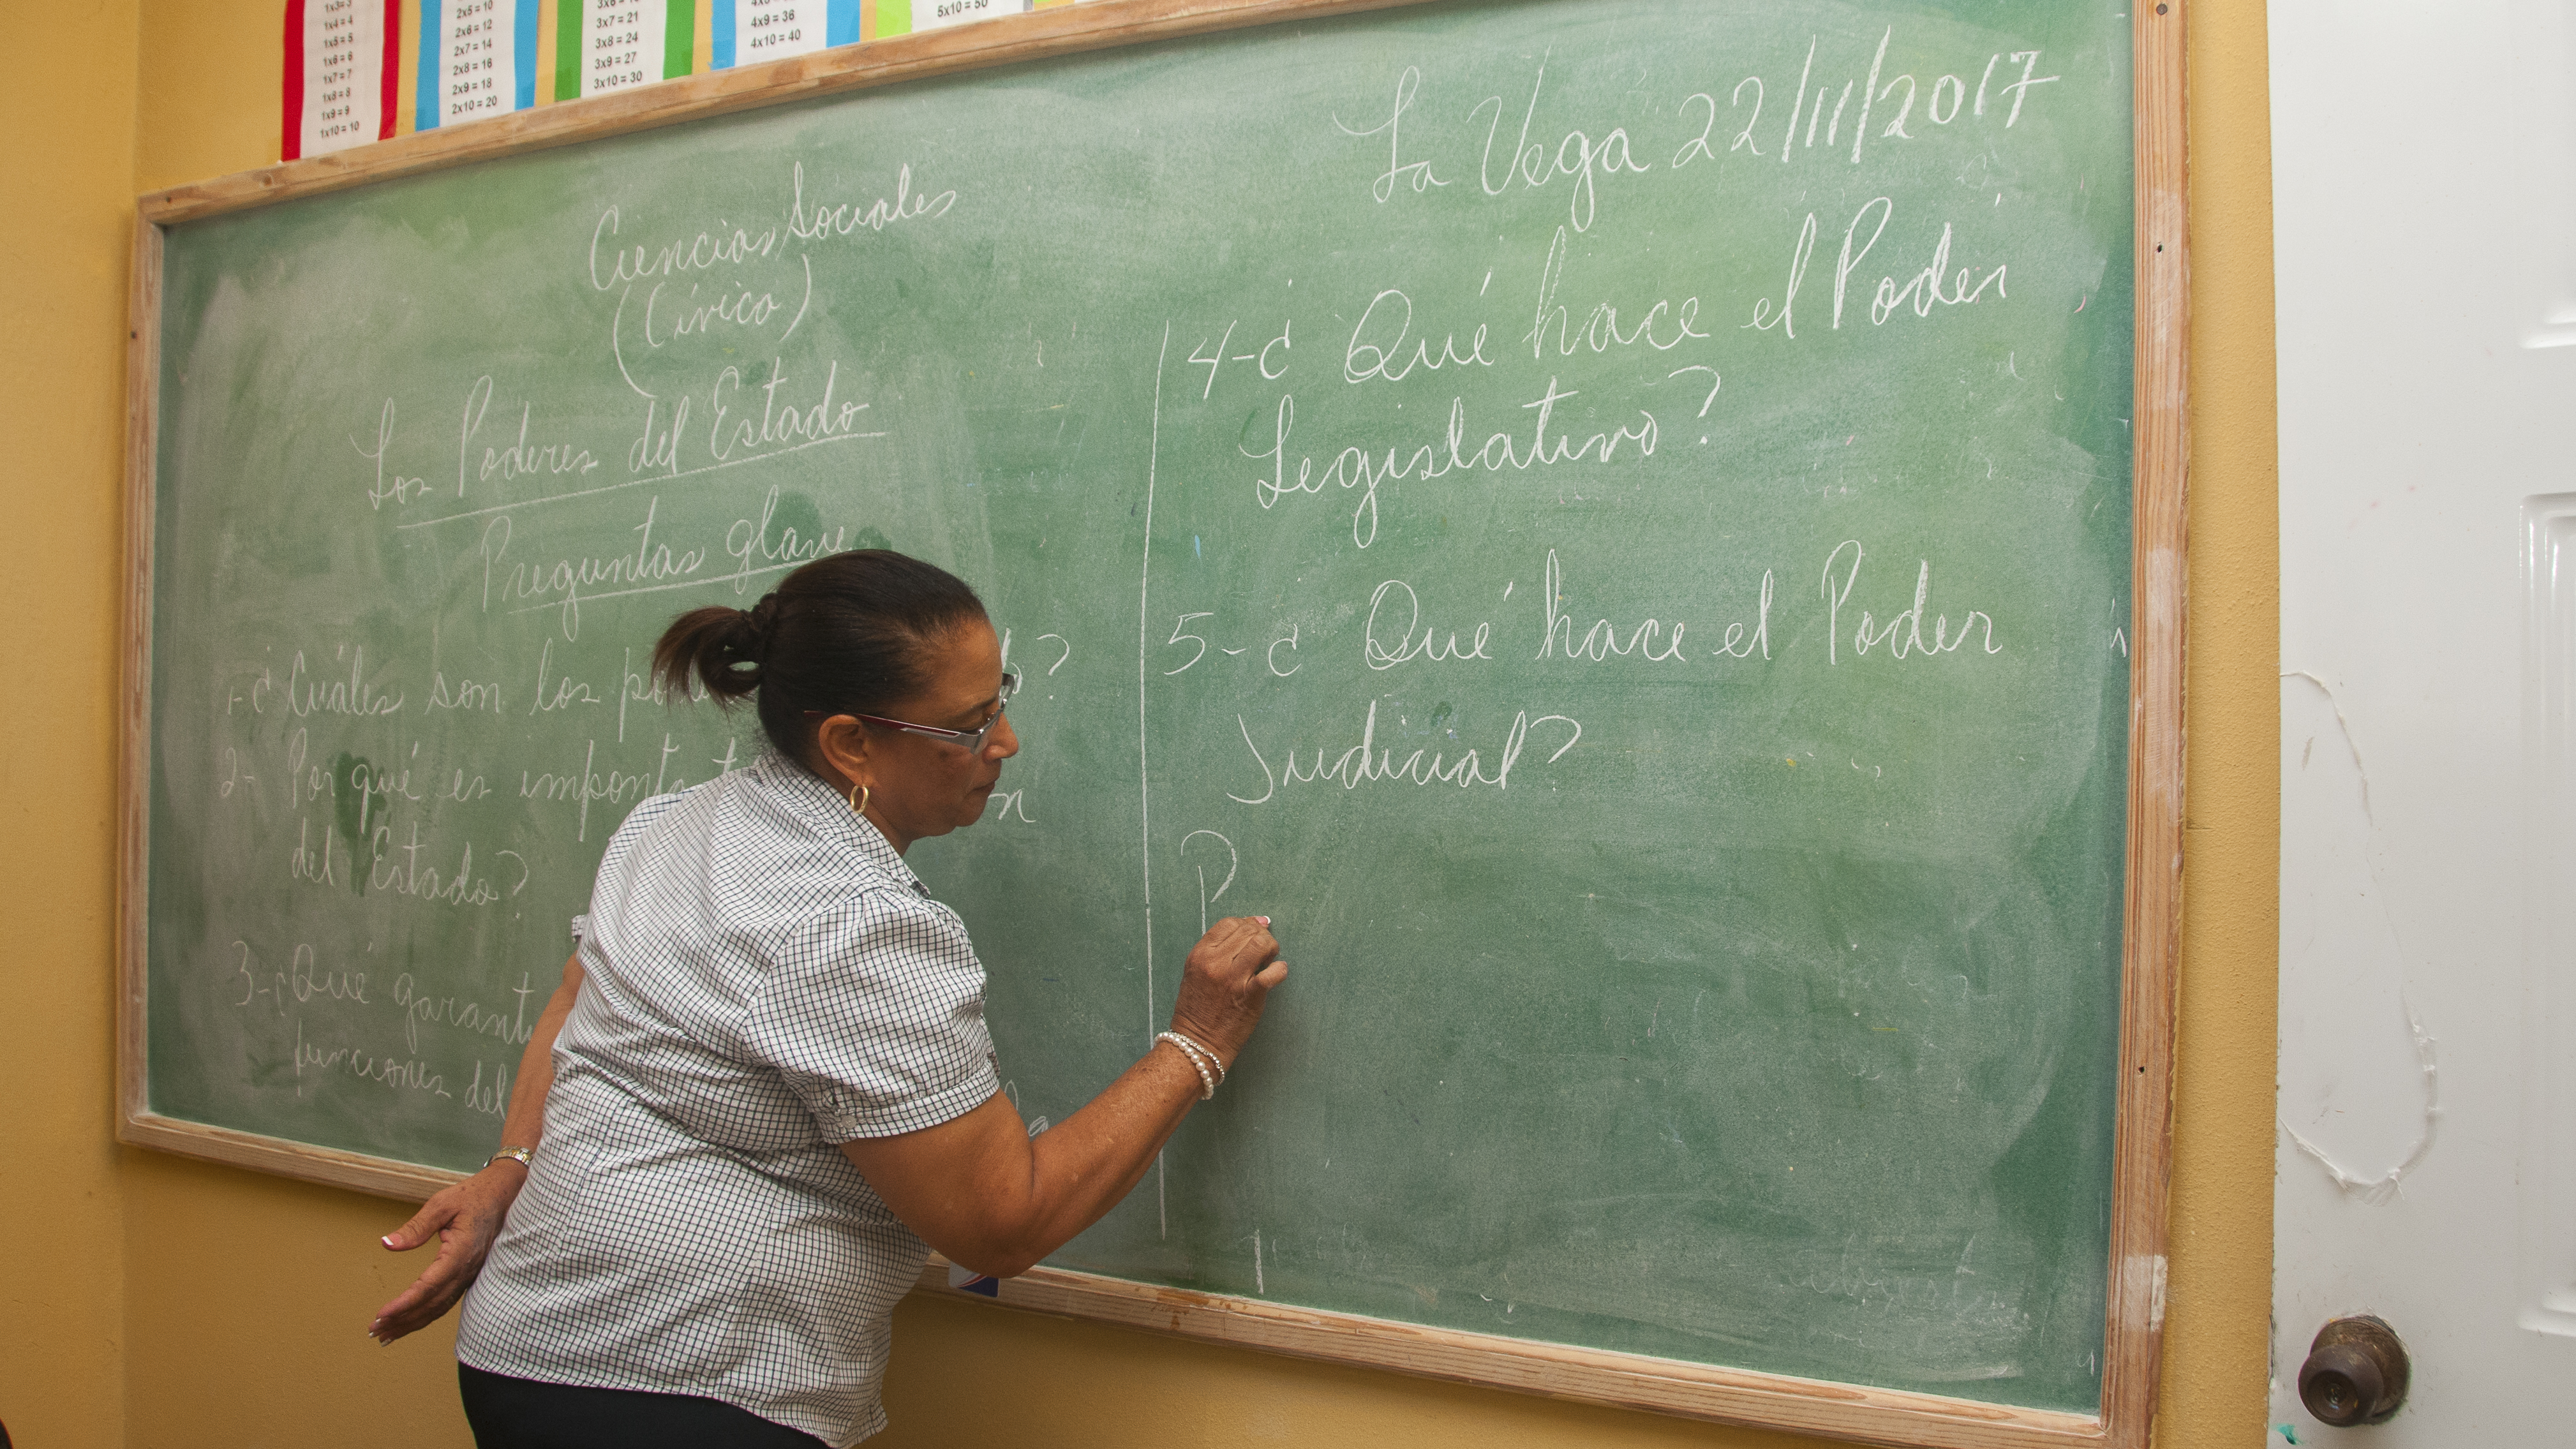 1x3=3
1x4=4
1x5=5
1x6=6
1x7=7
1x8=8
1x9=9
1x10=10
2x5=10
2x6=12
2x7=14
2x8=16
2x9=18
2x10=20
3x7=21
3x8=24
3x9=27
3x10=30
4x9=36
4x10=40
5x10=50
Ciencias Sociales
(Cívica)
Los Poderes del Estado
Preguntas glave
1-¿ Cuáles son los ?
2- Por qué es
del Estado?
3-¿Qué
funciones del
La Vega 22/11/2017
4-¿ Qué hace el Poder
Legislativo?
5-¿ Qué hace el Poder
Judicial?
P